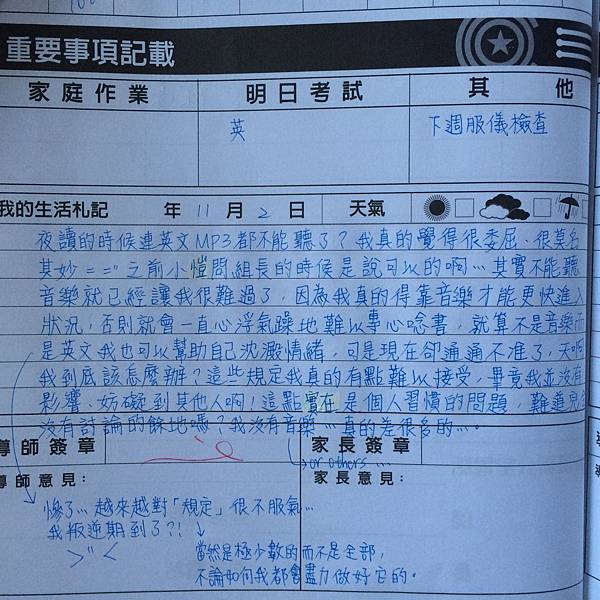 重要事項記載
家庭作業 明日考試 其他
英 下週服儀檢查
我的生活札記 年 11 月 2 日 天氣
夜讀的時候連英文MP3都不能聽了？我真的覺得很委屈、很莫名
其妙 = =" 之前小愷問組長的時候是說可以的啊…其實不能聽
音樂就已經讓我很難過了，因為我真的得靠音樂才能更快進入
狀況，否則就會一直心浮氣躁地難以專心唸書，就算不是音樂而
是英文我也可以幫助自己沈澱情緒，可是現在卻通通不准了，天啊
我到底該怎麼辦？這些規定我真的有點難以接受，畢竟我並沒有
影響、妨礙到其他人啊！這點實在是個人習慣的問題，難道完全
沒有討論的餘地嗎？我沒有音樂…真的差很多的…。
導師簽章 家長簽章
or others…
導師意見： 家長意見：
慘了…越來越對「規定」很不服氣…
我叛逆期到了?!
>"<
當然是極少數的而不是全部，
不論如何我都會盡力做好它的。